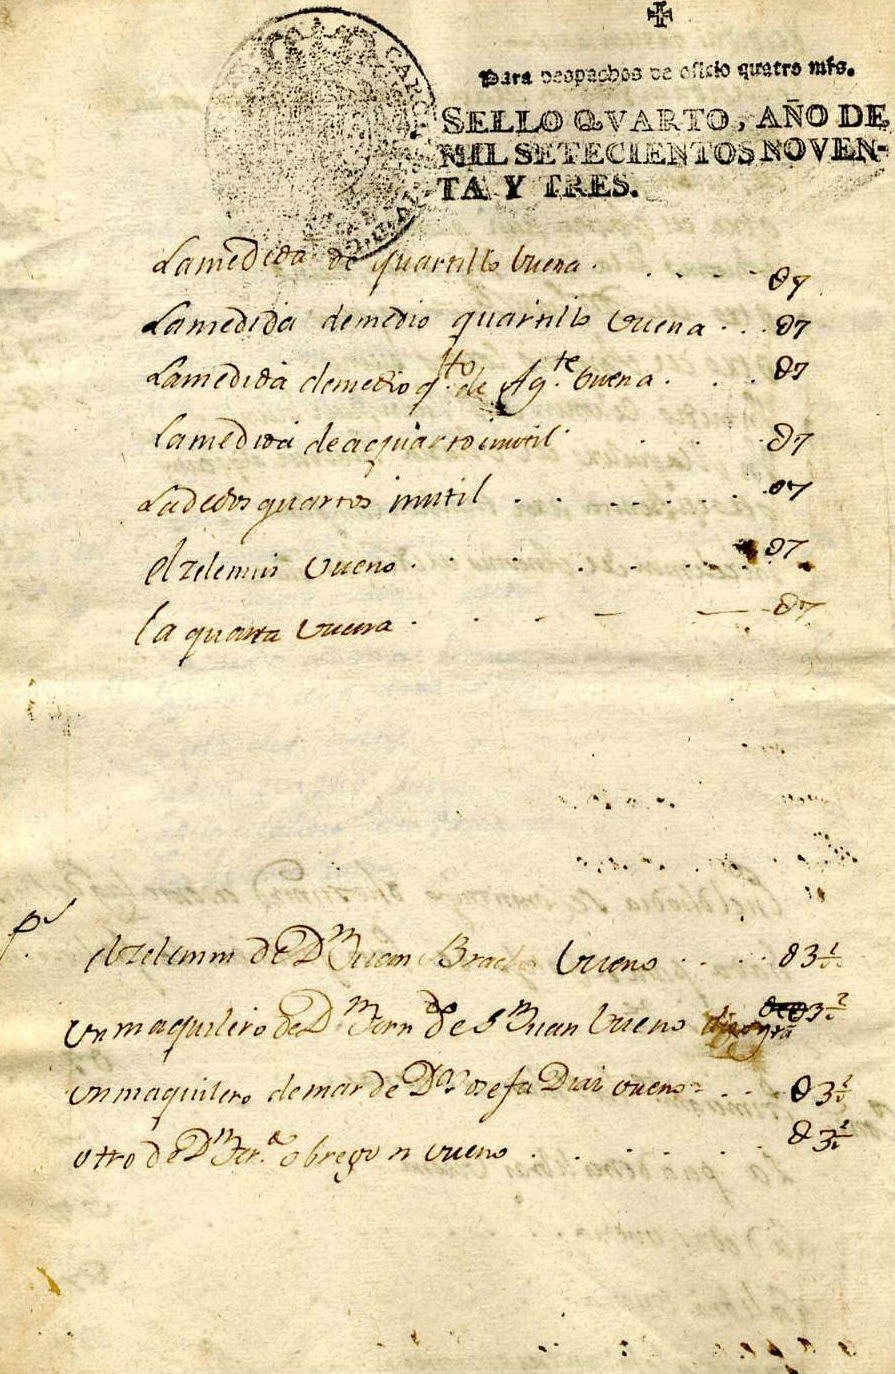 Para despachos de oficio quatro mrs.
SELLO QVARTO, AÑO DE
MIL SETECIENTOS NOVEN-
TA Y TRES.
CAROL
La medida de quartillo buena . 07
La medida de medio quartillo vuena . . . 07
La medida de medio qto. de Agte. buena . . . 07
La medida de a quarto inutil . . . 07
La de dos quartos inutil . . . 07
el zelemin vueno . . . 07
la quarta vuena . . . 07
el zelemin de Dn Juan vueno . . . 03½
Un maquilero de Dn Ferndo de Sn Juan vueno 03½
Un maquilero de mar de Da Josefa Diai vueno . . 03½
otro de Dn Fero. obregon vueno . . . 03½